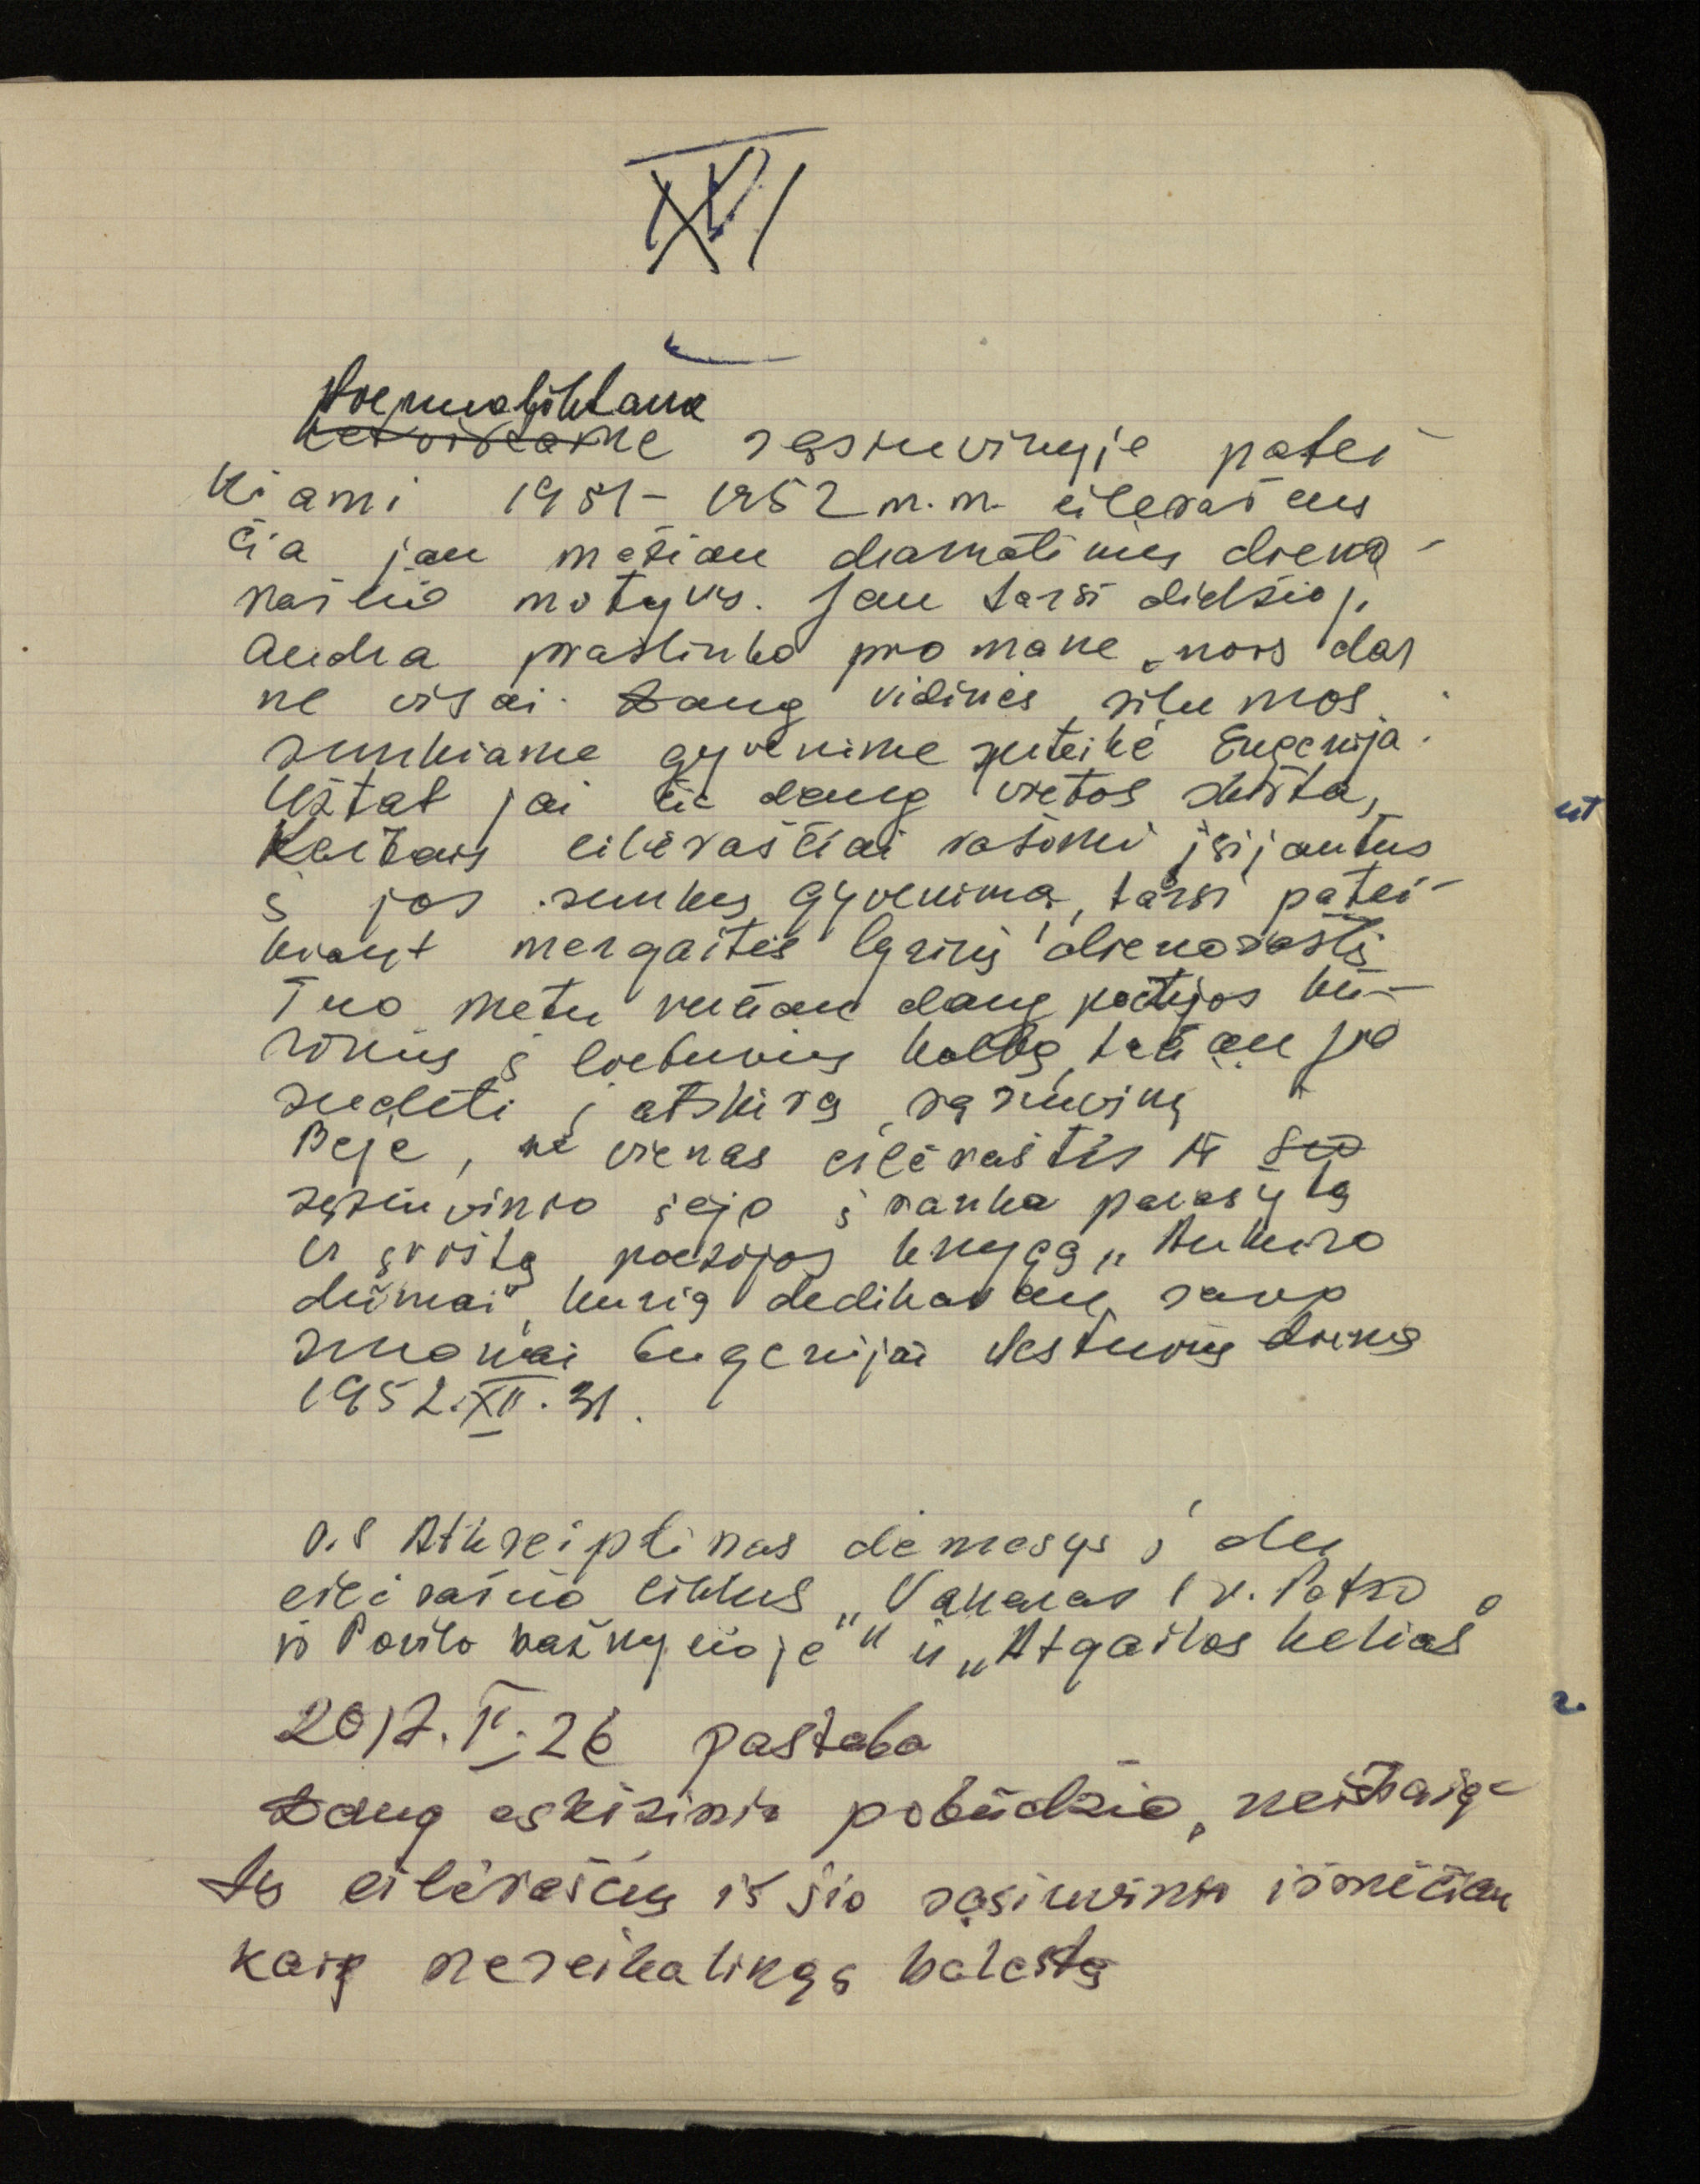 XVI
Šešioliktame
ketvirtame sąsiuvinyje patei-
kiami 1951-1952 m.m. eilėraščius
čia jau mažiau dramatinių dieno-
raščio motyvų. Jau tarsi didžioji
audra praslinko pro mane, nors dar
ne visai. Daug vidinės šilumos
sunkiame gyvenime suteikė Eugenija.
Užtat jai čia daug vietos skirta,
Kartais eilėraščiai rašomi įsijautus
į jos sunkų gyvenimą, tarsi patei-
kiant mergaitės lyrinį dienoraštį
Tuo metu verčiau daug poezijos kū-
rinių į lietuvių kalbą, tačiau jie
sudėti į atskirą sąsiuvinį
Beje, ne vienas eilėraštis iš šio
sąsiuvinio įėjo į ranka parašytą
ir įrištą poezijos knygą „Aukuro
dūmai", kurią dedikavau savo
žmonai Eugenijai Vestuvių dieną
1952.XII.31.
P.S Atkreiptinas dėmesys į du
eilėraščio ciklus „Vakaras šv. Petro
ir Povilo bažnyčioje" ir „Atgailos kelias"
2017.II.26 pastaba
Daug eskizinio pobūdžio, neišbaig-
tų eilėraščių iš šio sąsiuvinio išmečiau
kaip nereikalingą balastą